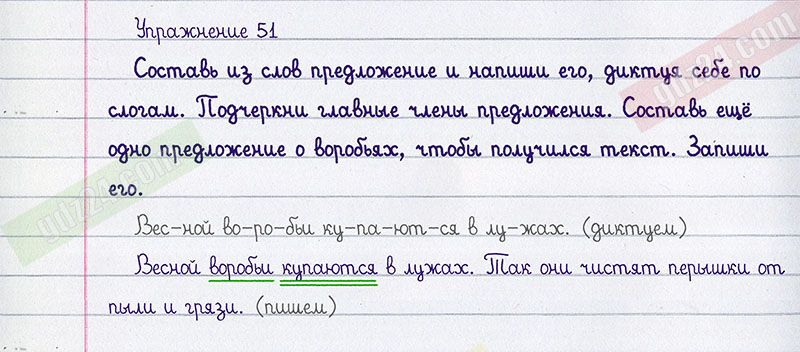 Упражнение 51
Составь из слов предложение и напиши его, диктуя себе по
слогам. Подчеркни главные члены предложения. Составь ещё
одно предложение о воробьях, чтобы получился текст. Запиши
его.
Вес-ной во-ро-бьи ку-па-ют-ся в лу-жах. (диктуем)
Весной воробьи купаются в лужах. Так они чистят перышки от
пыли и грязи. (пишем)
gdz24.com
gdz24.com